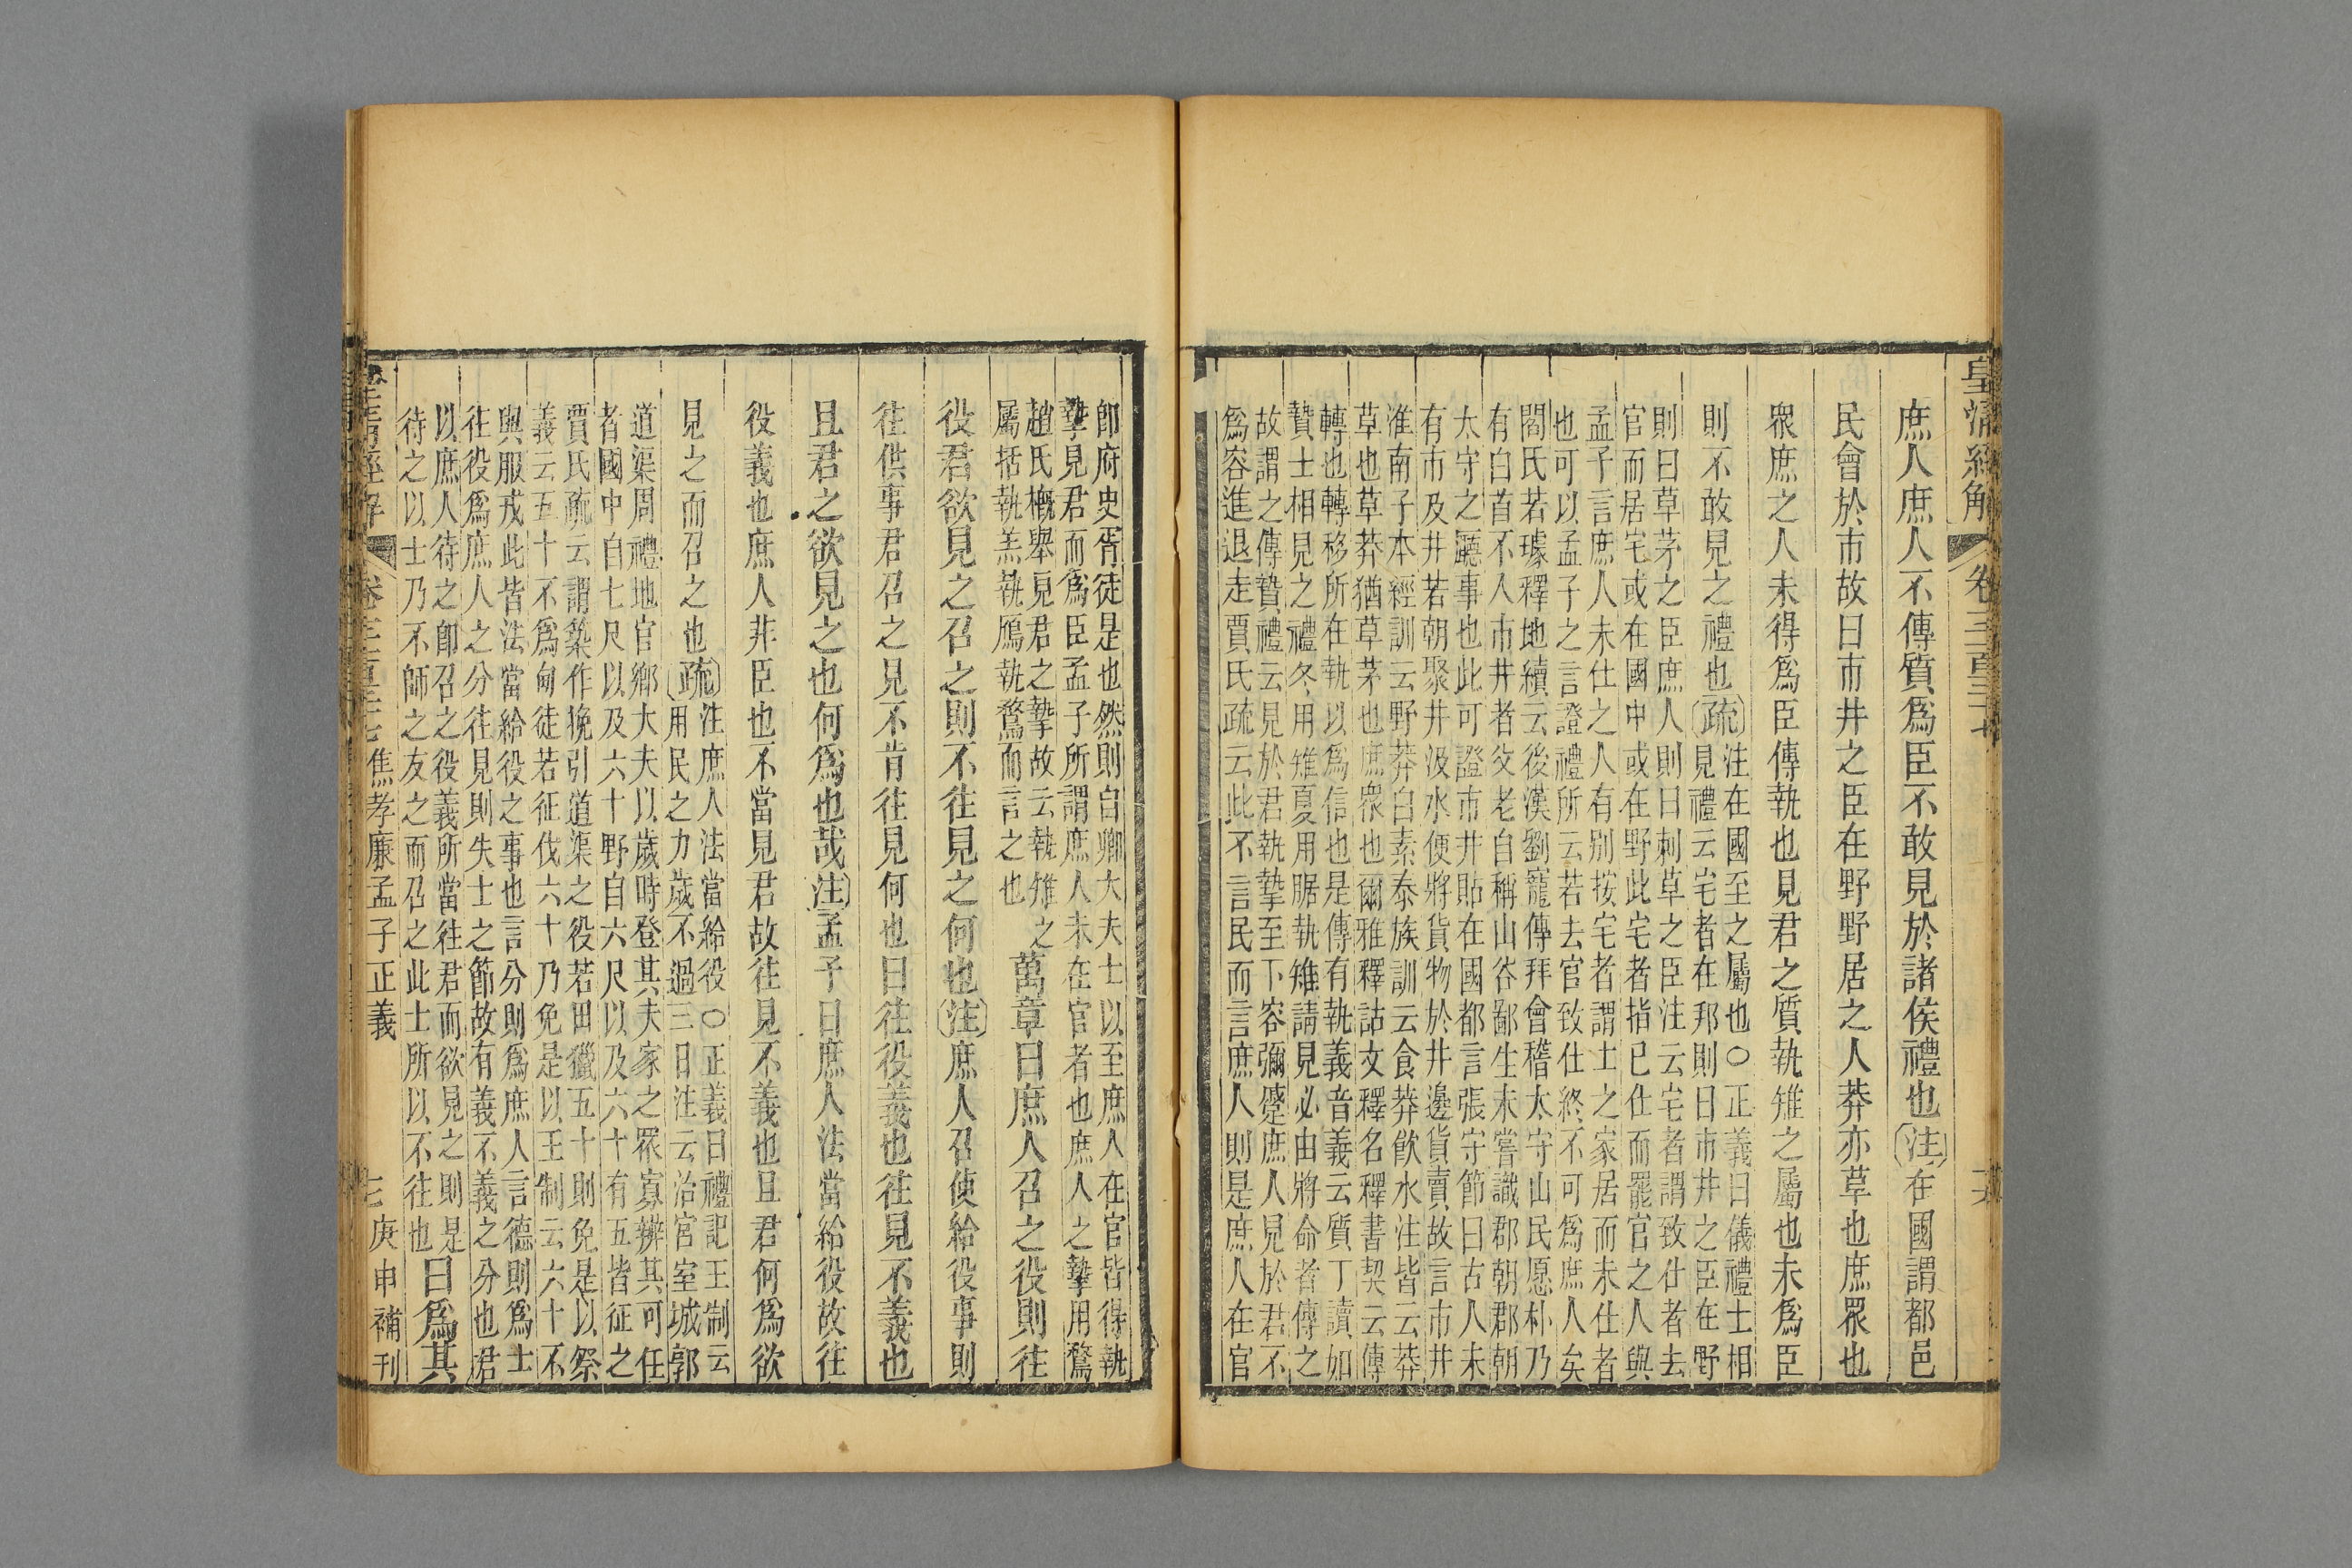 皇清經解
庶人庶人不傳質爲臣不敢見於諸侯禮也注在國謂都邑
民會於市故曰市井之臣在野野居之人莽亦草也庶眾也
衆庶之人未得爲臣傳執也見君之質執雉之屬也未爲臣
則不敢見之禮也疏
注在國至之屬也○正義曰儀禮士相
見禮云宅者在邦則曰市井之臣在野
則曰草茅之臣庶人則曰刺草之臣注云宅者謂致仕者去
官而居宅或在國中或在野此宅者指已仕而罷官之人與
孟子言庶人未仕之人有别按宅者謂士之家居而未仕者
也可以孟子之言證禮所云若去官致仕終不可爲庶人矣
閻氏若璩釋地續云後漢劉寵傳拜會稽太守山民愿朴乃
有白首不入市井者父老自稱山谷鄙生未嘗識郡朝郡朝
太守之廳事也此可證市井貼在國都言張守節曰古人未
有市及井若朝聚井汲水便將貨物於井邊貨賣故言市井
淮南子本經訓云野莽白素泰族訓云食莽飲水注皆云莽
草也草莽猶草茅也庶衆也爾雅釋詁文釋名釋書契云傳
轉也轉移所在執以爲信也是傳有執義音義云質丁讀如
贄士相見之禮冬用雉夏用腒執雉請見必由將命者傳之
故謂之傳贄禮云見於君執摯至下容彌蹙庶人見於君不
爲容進退走賈氏疏云此不言民而言庶人則是庶人在官
卽府史胥徒是也然則自卿大夫士以至庶人在官皆得執
摯見君而爲臣孟子所謂庶人未在官者也庶人之摯用鶩
趙氏槪舉見君之摯故云執雉之
屬括執羔執鴈執鶩而言之也
萬章曰庶人召之役則往
役君欲見之召之則不往見之何也注庶人召使給役事則
往供事君召之見不肯往見何也曰往役義也往見不義也
且君之欲見之也何爲也哉注孟子曰庶人法當給役故往
役義也庶人非臣也不當見君故往見不義也且君何爲欲
見之而召之也疏
注庶人法當給役○正義曰禮記王制云
用民之力歲不過三日注云治宮室城郭
道渠周禮地官鄉大夫以歲時登其夫家之眾寡辨其可任
者國中自七尺以及六十野自六尺以及六十有五皆征之
賈氏疏云謂築作挽引道渠之役若田獵五十則免是以祭
義云五十不爲甸徒若征伐六十乃免是以王制云六十不
與服戎此皆法當給役之事也言分則爲庶人言德則爲士
往役爲庶人之分往見則失士之節故有義不義之分也君
以庶人待之卽召之役義所當往君而欲見之則是
待之以士乃不師之友之而召之此士所以不往也
曰爲其
焦孝廉孟子正義
七
庚申補刊